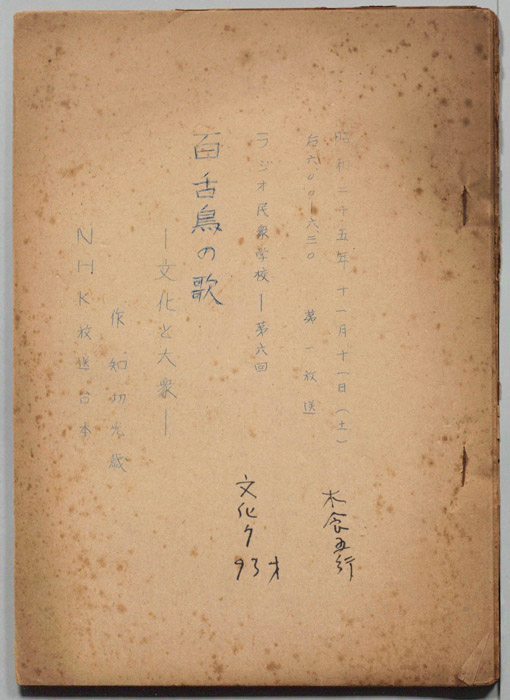 昭和二十五年十一月十一日(土)
后六00-六三0 第一放送
ラジオ民衆学校ー第六回
百舌鳥の歌
ー文化と大衆ー
作 知切光歳
NHK放送台本
木食五行
文化ク
93才